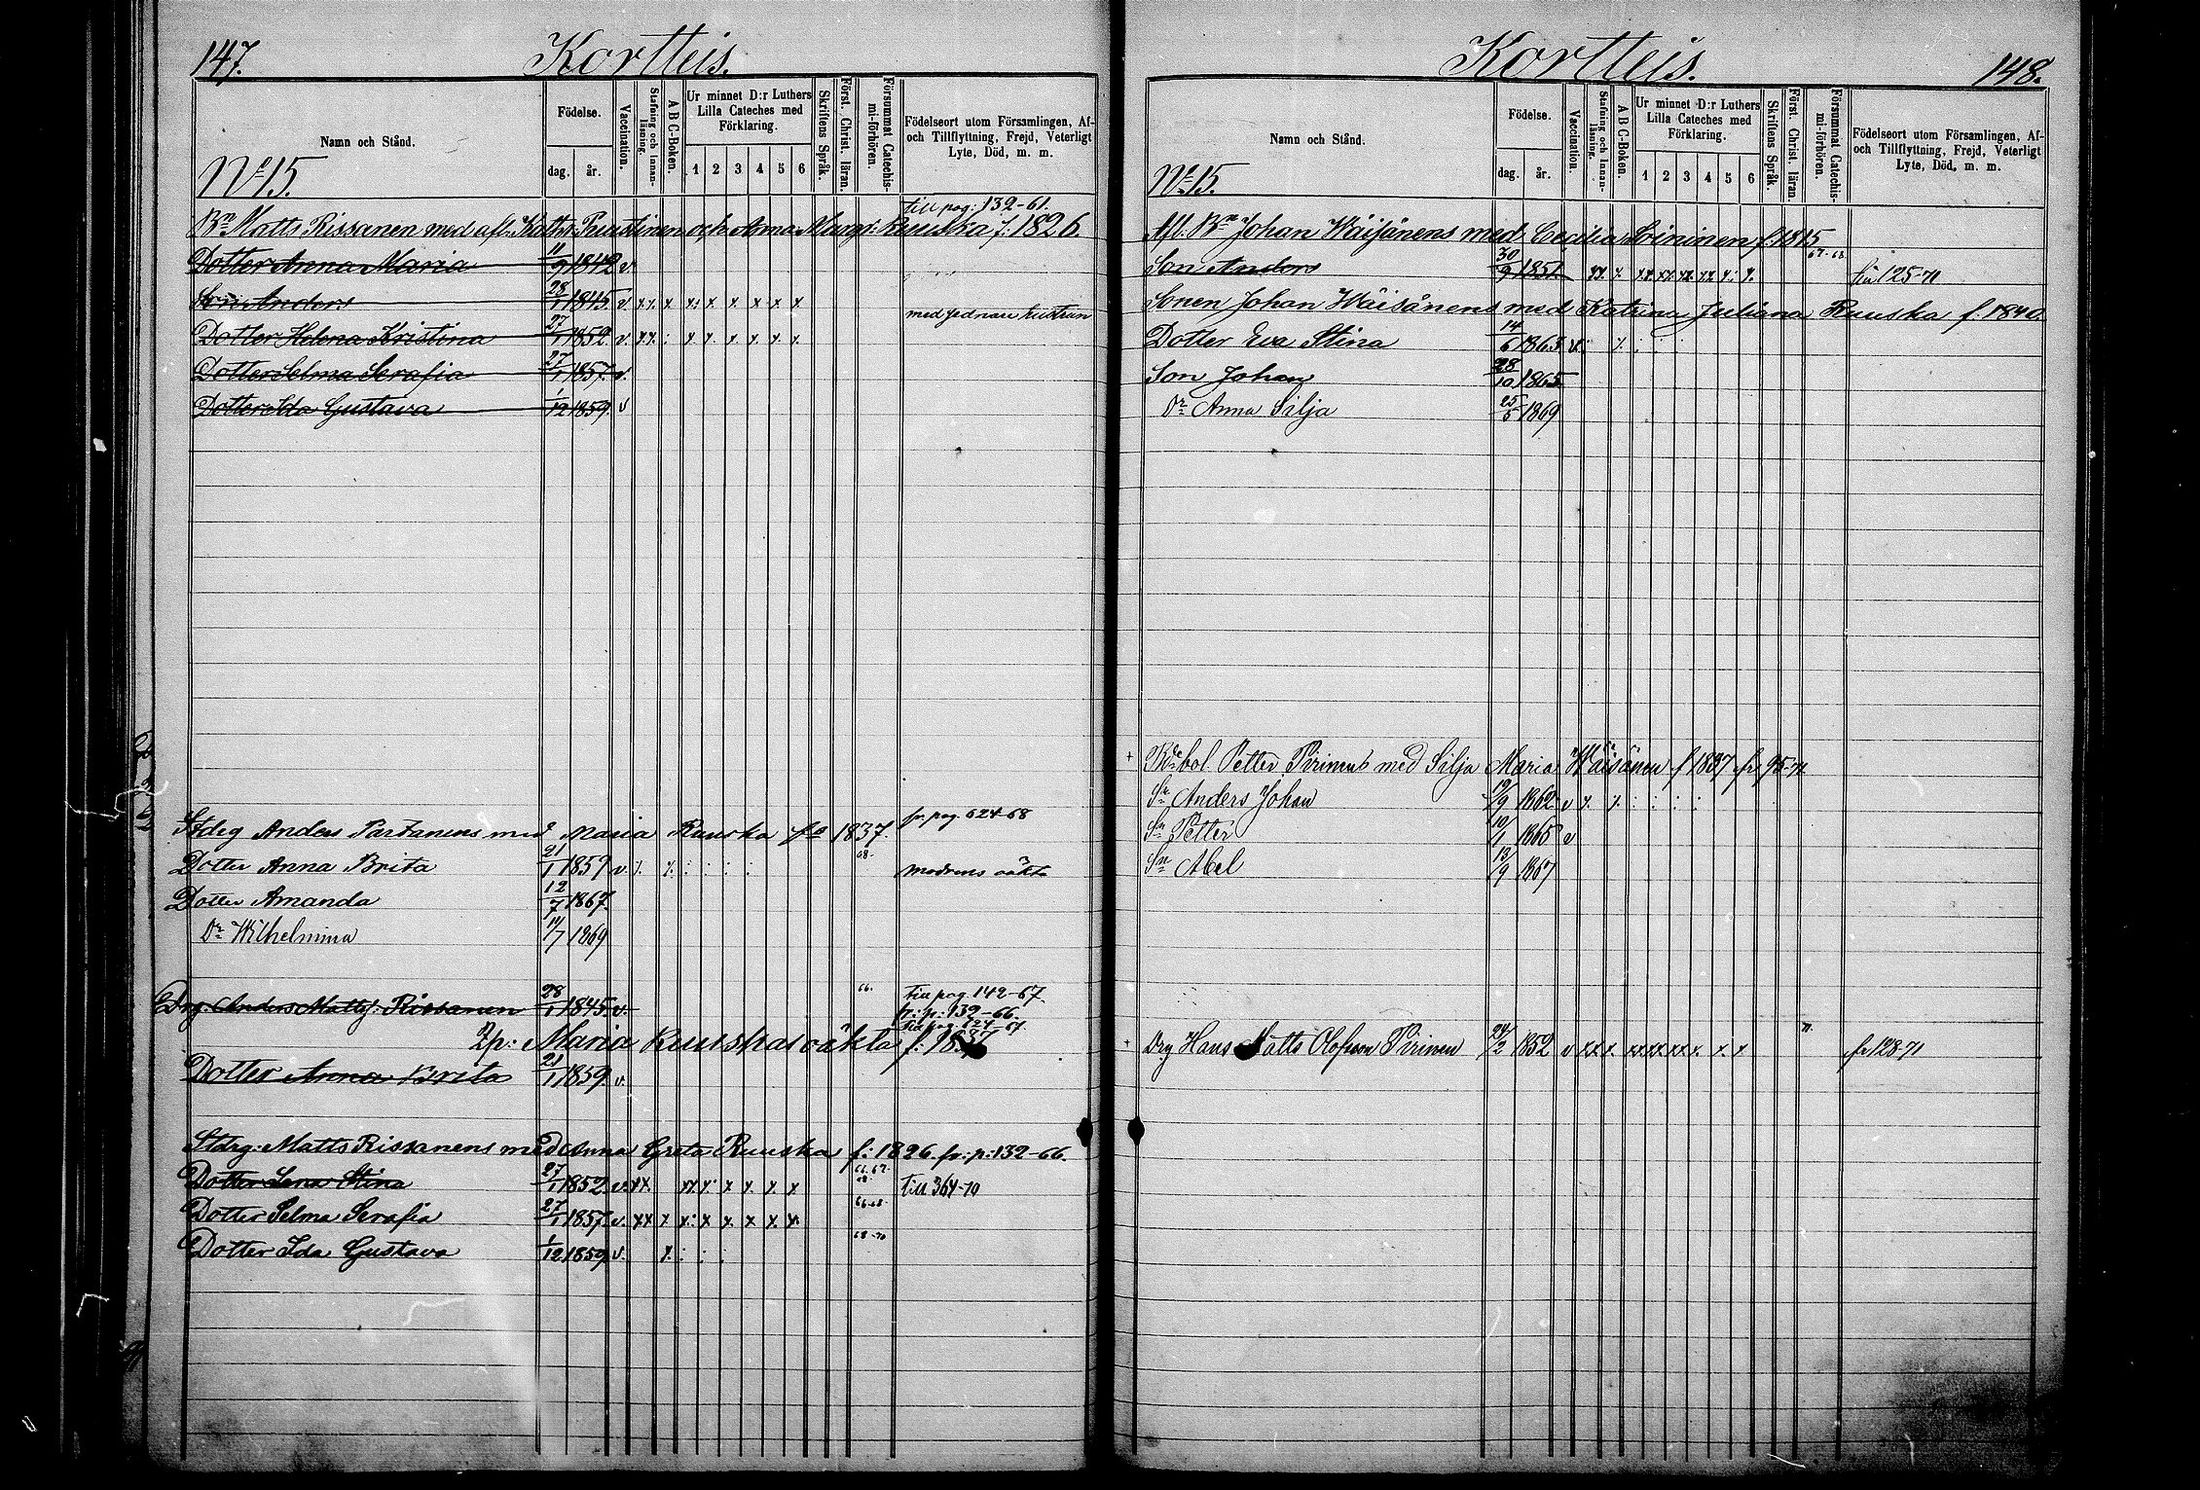 147.
Kortteis.
Namn och Stånd.
Födelse.
dag.
år.
Vaccination.
Stafning och Innanläsning.
A B C-Boken.
Ur minnet D:r Luthers Lilla Cateches med Förklaring.
1 2 3 4 5 6
Skriftens Språk.
Först. Christ. läran.
Försummat Catechismi-förhören.
Födelseort utom Församlingen, Af- och Tillflyttning, Frejd, Veterligt Lyte, Död, m. m.
No 15.
till pag: 132-61.
Bn Matts Rissanen med afl. Kathr. Puustinen och Anna Margt: Ruuska f. 1826
Dotter Anna Maria 11/9 1842 v.
Son Anders 28/1 1845 v. x x. x x: x x x x x
med fadren
Dotter Helena Kristina 27/1 1852 v. x x. : x x. x x x x
Dotter Selma Serafia 27/1 1857. v.
Dotter Ida Gustava 1/12 1859. v
fr. pag. 624-68
Stdrg Anders Partanens med Maria Ruuska fd 1837.
Dotter Anna Brita 21/1 1859 v. x x : : : : 68. modrens oäkta
Dotter Amanda 12/7 1867.
Dr Wilhelmina 11/7 1869
Drg. Anders Mattsf. Rissanen 28/1 1845 v. 66. till pag. 142-67.
fr: p: 132-66.
till pag. 624-67
Ip: Maria Ruuskas oäkta f. 1837
Dotter Anna Brita 21/1 1859. v.
Stdrg: Matts Rissanens med Anna Greta Ruuska f: 1826. fr: p: 132-66.
Dotter Lena Stina 27/1 1852. v. x x. x x x. x x. x. x 66. 67. 68. till 364-70
Dotter Selma Serafia 27/1 1857. v. x x x x: x x. x x x. 66-68.
Dotter Ida Gustava 1/12 1859. v. x : : : 68-70
Kortteis.
148.
Namn och Stånd.
Födelse.
dag.
år.
Vaccination.
Stafning och Innanläsning.
A B C-Boken.
Ur minnet D:r Luthers Lilla Cateches med Förklaring.
1 2 3 4 5 6
Skriftens Språk.
Först. Christ. läran.
Försummat Catechismi-förhören.
Födelseort utom Församlingen, Af- och Tillflyttning, Frejd, Veterligt Lyte, Död, m. m.
No 15.
Afl. Bn Johan Wäisänens med Cecilia Soininen f. 1815
Son Anders 30/9 1851. xx. x. xx. xx. xx. xx. x: x. 67-68 till 125-71
Sonen Johan Wäisänens med Katrina Juliana Ruuska f. 1840.
Dotter Eva Stina 14/6 1863 v. x : : :
Son Johan 28/10 1865
Dr Anna Silja 25/5 1869
Petter Pirinens med Silja Maria Wäisänen f 1837 fr 95-71
Sn Anders Johan 19/9 1862 v x. x. : : : :
Sn Petter 10/1 1865 v
Sn Abel 13/9 1867
Drg Hans Matts Olofsson Pirinen 24/2 1852 v xx x. xx xx xx x. x. x 71. fr 128-71